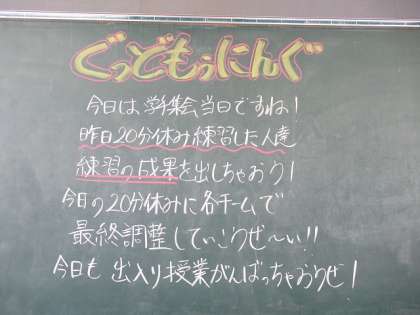 ぐっどもぅにんぐ
今日は学年集会当日ですね!
昨日20分休み練習した人達
練習の成果を出しちゃおう!
今日の20分休みに各チームで
最終調整していこうぜ~い!!
今日も出入り授業がんばっちゃおうぜ!